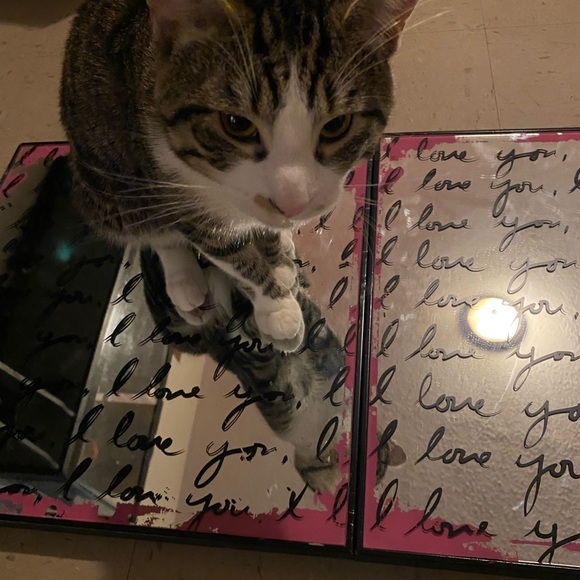 you, I love you, I
you, I love you, I
I love you, I
I love you, I
I love you,
I love you, I
I love you,
I love you
I love you,
I love you
I love yo
I love you
I love y